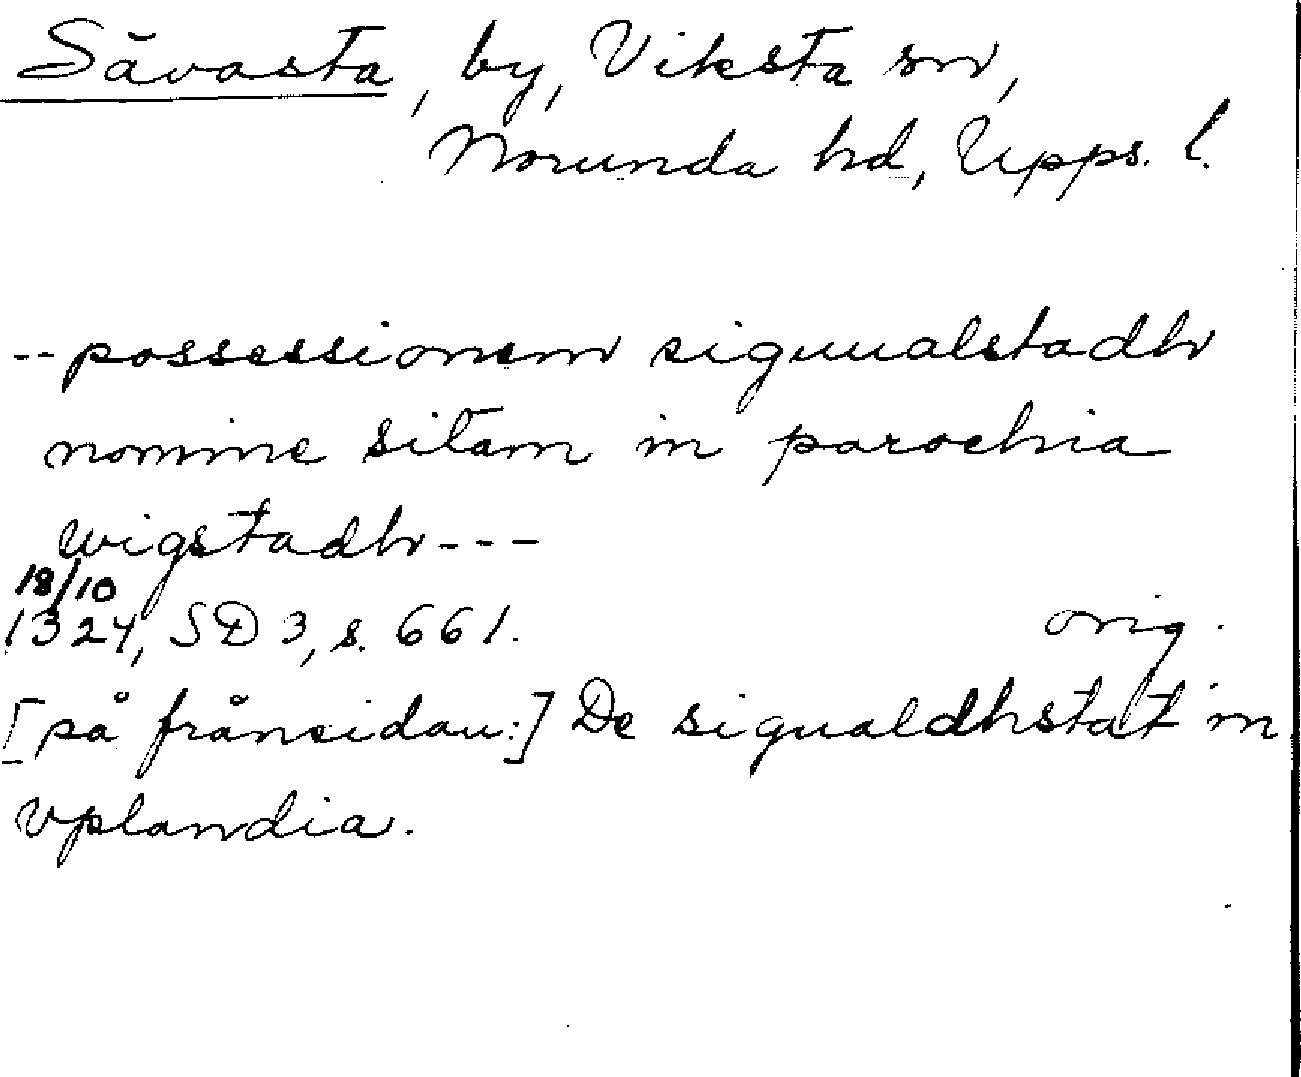 Såvasta, by, Viksta sn,
Norunda hd, Upps. l.
-- possessionem siguualstadh
nomine sitam in parochia
wigstadh ---
18/10
1324, SD 3, s. 661. orig.
[på frånsidan:] De sigualdhstat in
Vplandia.